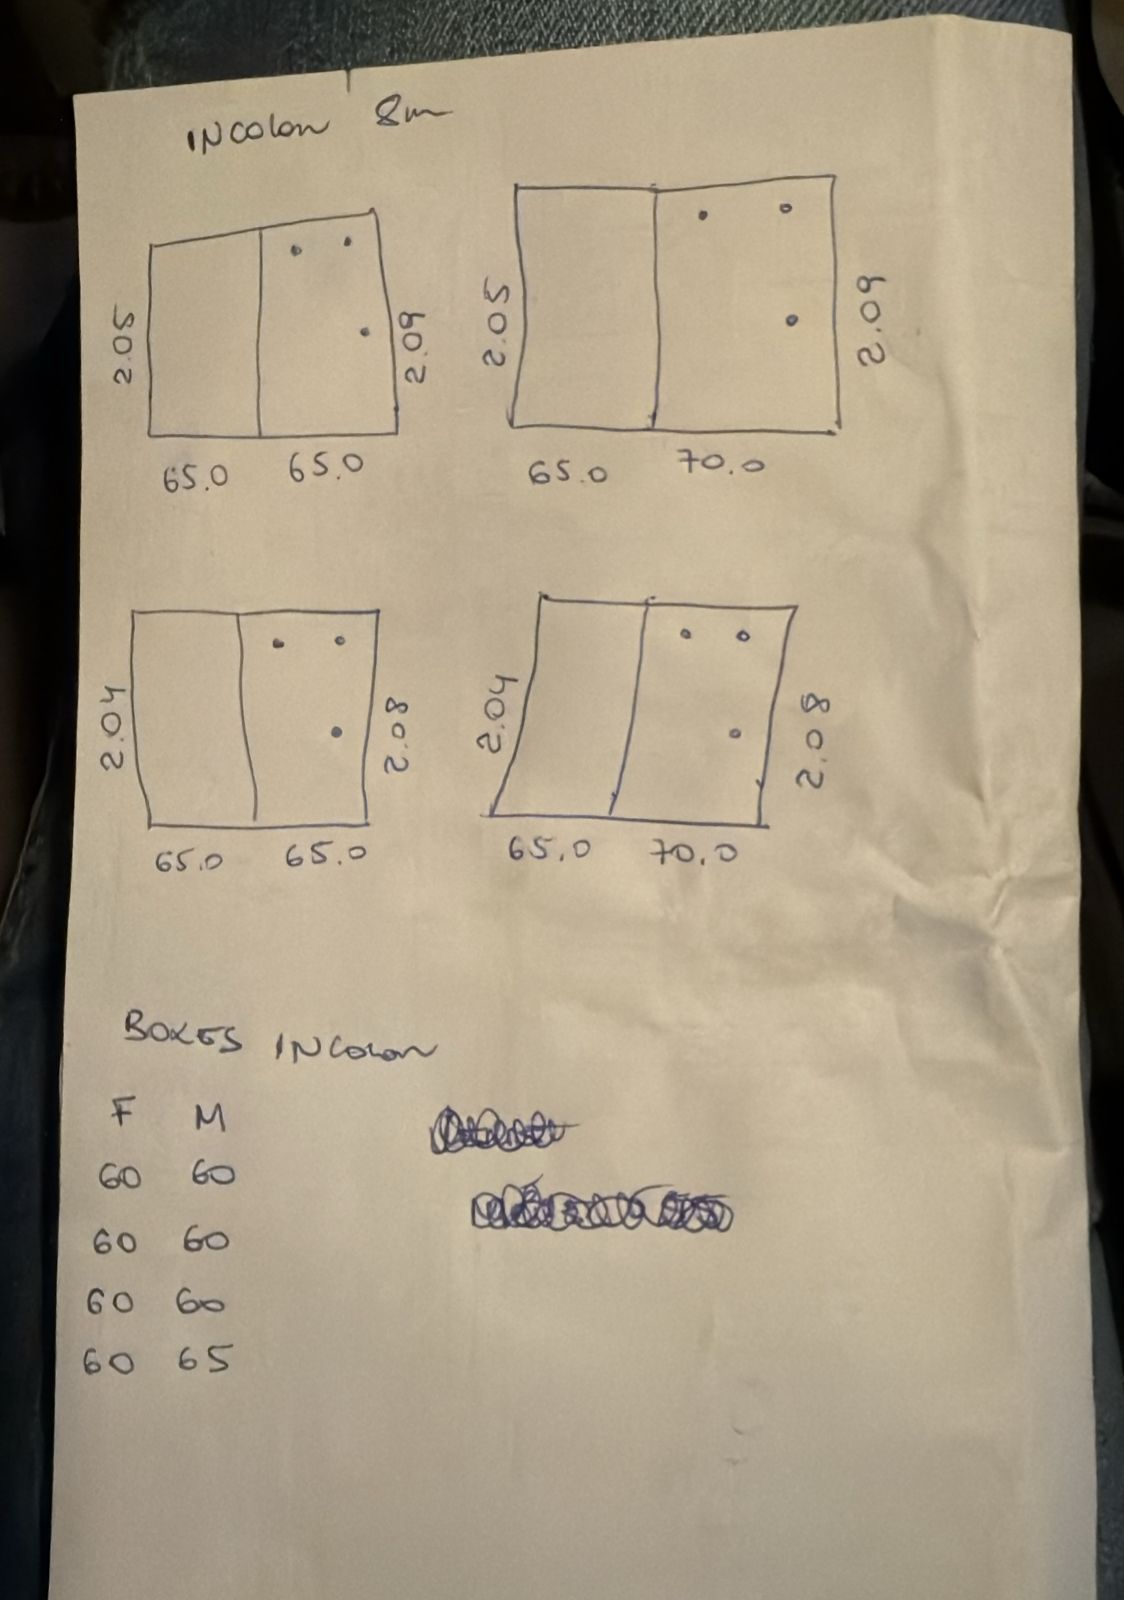 INColoR 8m
2.05 2.09 2.05 2.09
65.0 65.0 65.0 70.0
2.04 2.08 2.04 2.08
65.0 65.0 65.0 70.0
BOXES INColoR
F M
60 60
60 60
60 60
60 65